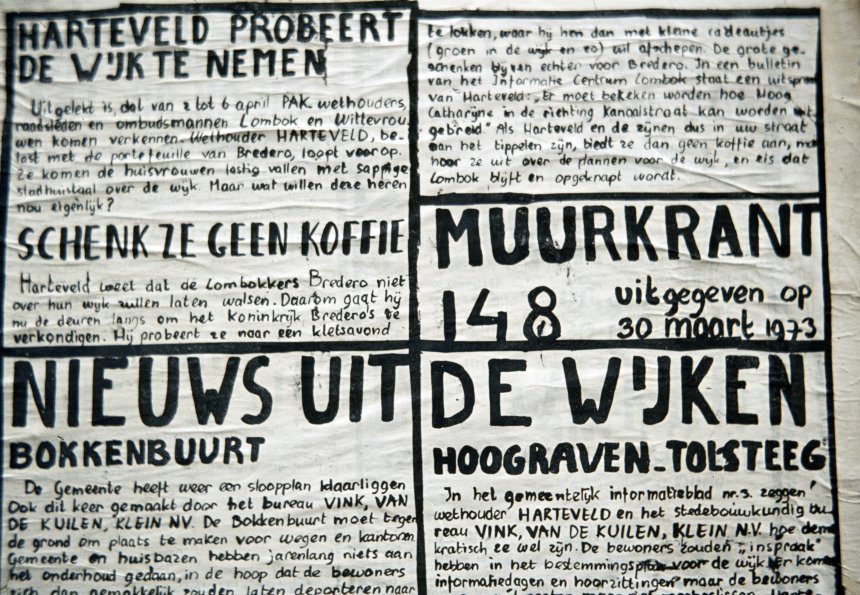 HARTEVELD PROBEERT
DE WIJK TE NEMEN
Uitgelekt is, dat van 2 tot 6 april PAK wethouders,
raadsleden en ombudsmannen Lombok en Wittevrou,
wen komen verkennen. Wethouder HARTEVELD, be-
last met de portefeuille van Bredero, loopt voorop.
Ze komen de huisvrouwen lastig vallen met sappige
stadhuistaal over de wijk. Maar wat willen deze heren
nou eigenlijk?
SCHENK ZE GEEN KOFFIE
Harteveld weet dat de Lombokkers Bredero niet
over hun wijk zullen laten walsen. Daarom gaat hij
nu de deuren langs om het koninkrijk Bredero's te
verkondigen. Hij probeert ze naar een kletsavond
te lokken, waar hij hen dan met kleine cadeautjes
(groen in de wijk en zo) wil afschepen. De grote ge-
schenken bij van echter voor Bredero. In een bulletin
van het Informatie Centrum Lombok staat een uitspraak
van Harteveld: "Er moet bekeken worden hoe Hoog
Catharijne in de richting Kanaalstraat kan worden uit
gebreid." Als Harteveld en de zijnen dus in uw straat
aan het tippelen zijn, biedt ze dan geen koffie aan, maar
hoor ze uit over de plannen voor de wijk, en eis dat
Lombok blijft en opgeknapt wordt.
MUURKRANT
148 uitgegeven op
30 maart 1973
NIEUWS UIT DE WIJKEN
BOKKENBUURT
De Gemeente heeft weer een sloopplan klaarliggen
Ook dit keer gemaakt door het bureau VINK, VAN
DE KUILEN, KLEIN NV. De Bokkenbuurt moet tegen
de grond om plaats te maken voor wegen en kantoren.
Gemeente en huisbazen hebben jarenlang niets aan
het onderhoud gedaan, in de hoop dat de bewoners
zich dan gemakkelijk zouden laten deporteren naar
HOOGRAVEN-TOLSTEEG
In het gemeentelijk informatieblad nr. 3. zeggen
wethouder HARTEVELD en het stedebouwkundig bu-
reau VINK, VAN DE KUILEN, KLEIN N.V. hoe demo
kratisch ze wel zijn. De bewoners zouden "inspraak"
hebben in het bestemmingsplan voor de wijk. Er komen
informatiedagen en hoorzittingen maar de bewoners